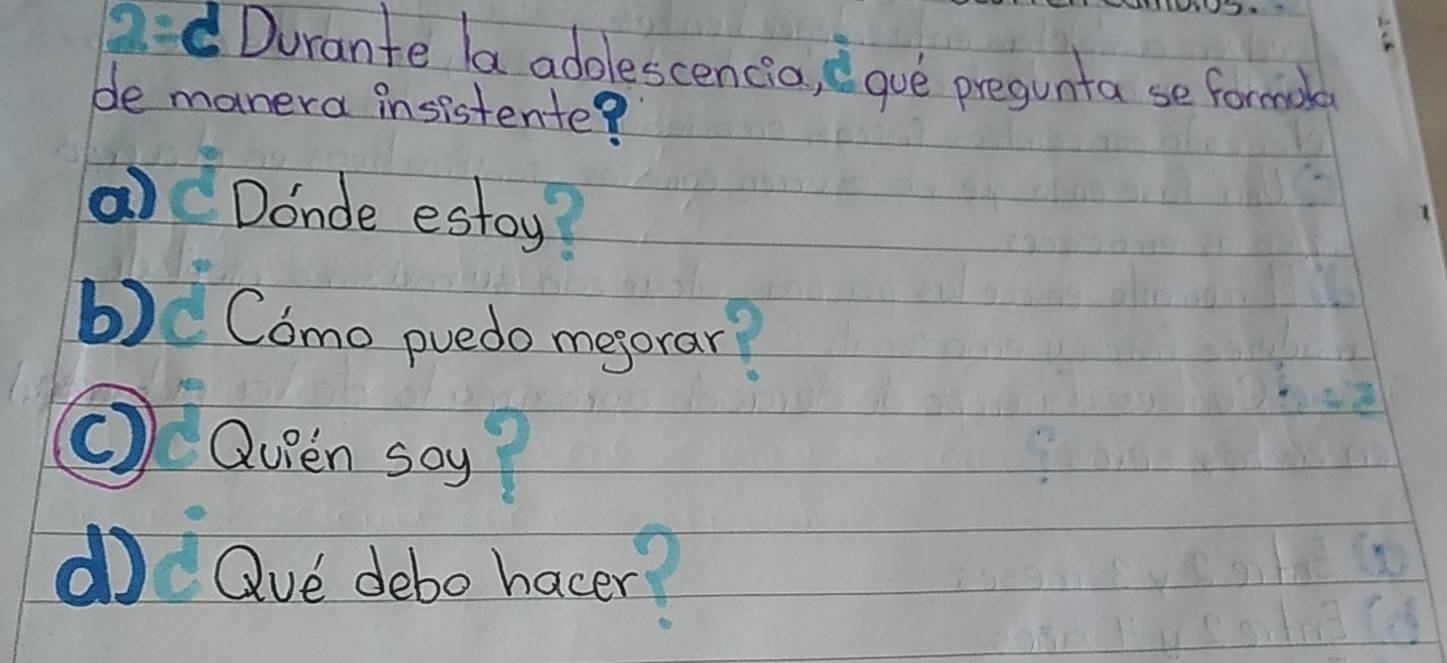 2=¿Durante la adolescencia, ¿qué pregunta se formula
de manera insistente?
a) ¿Dónde estoy?
b) ¿Cómo puedo mejorar?
c) ¿Quién soy?
d) ¿Qué debo hacer?